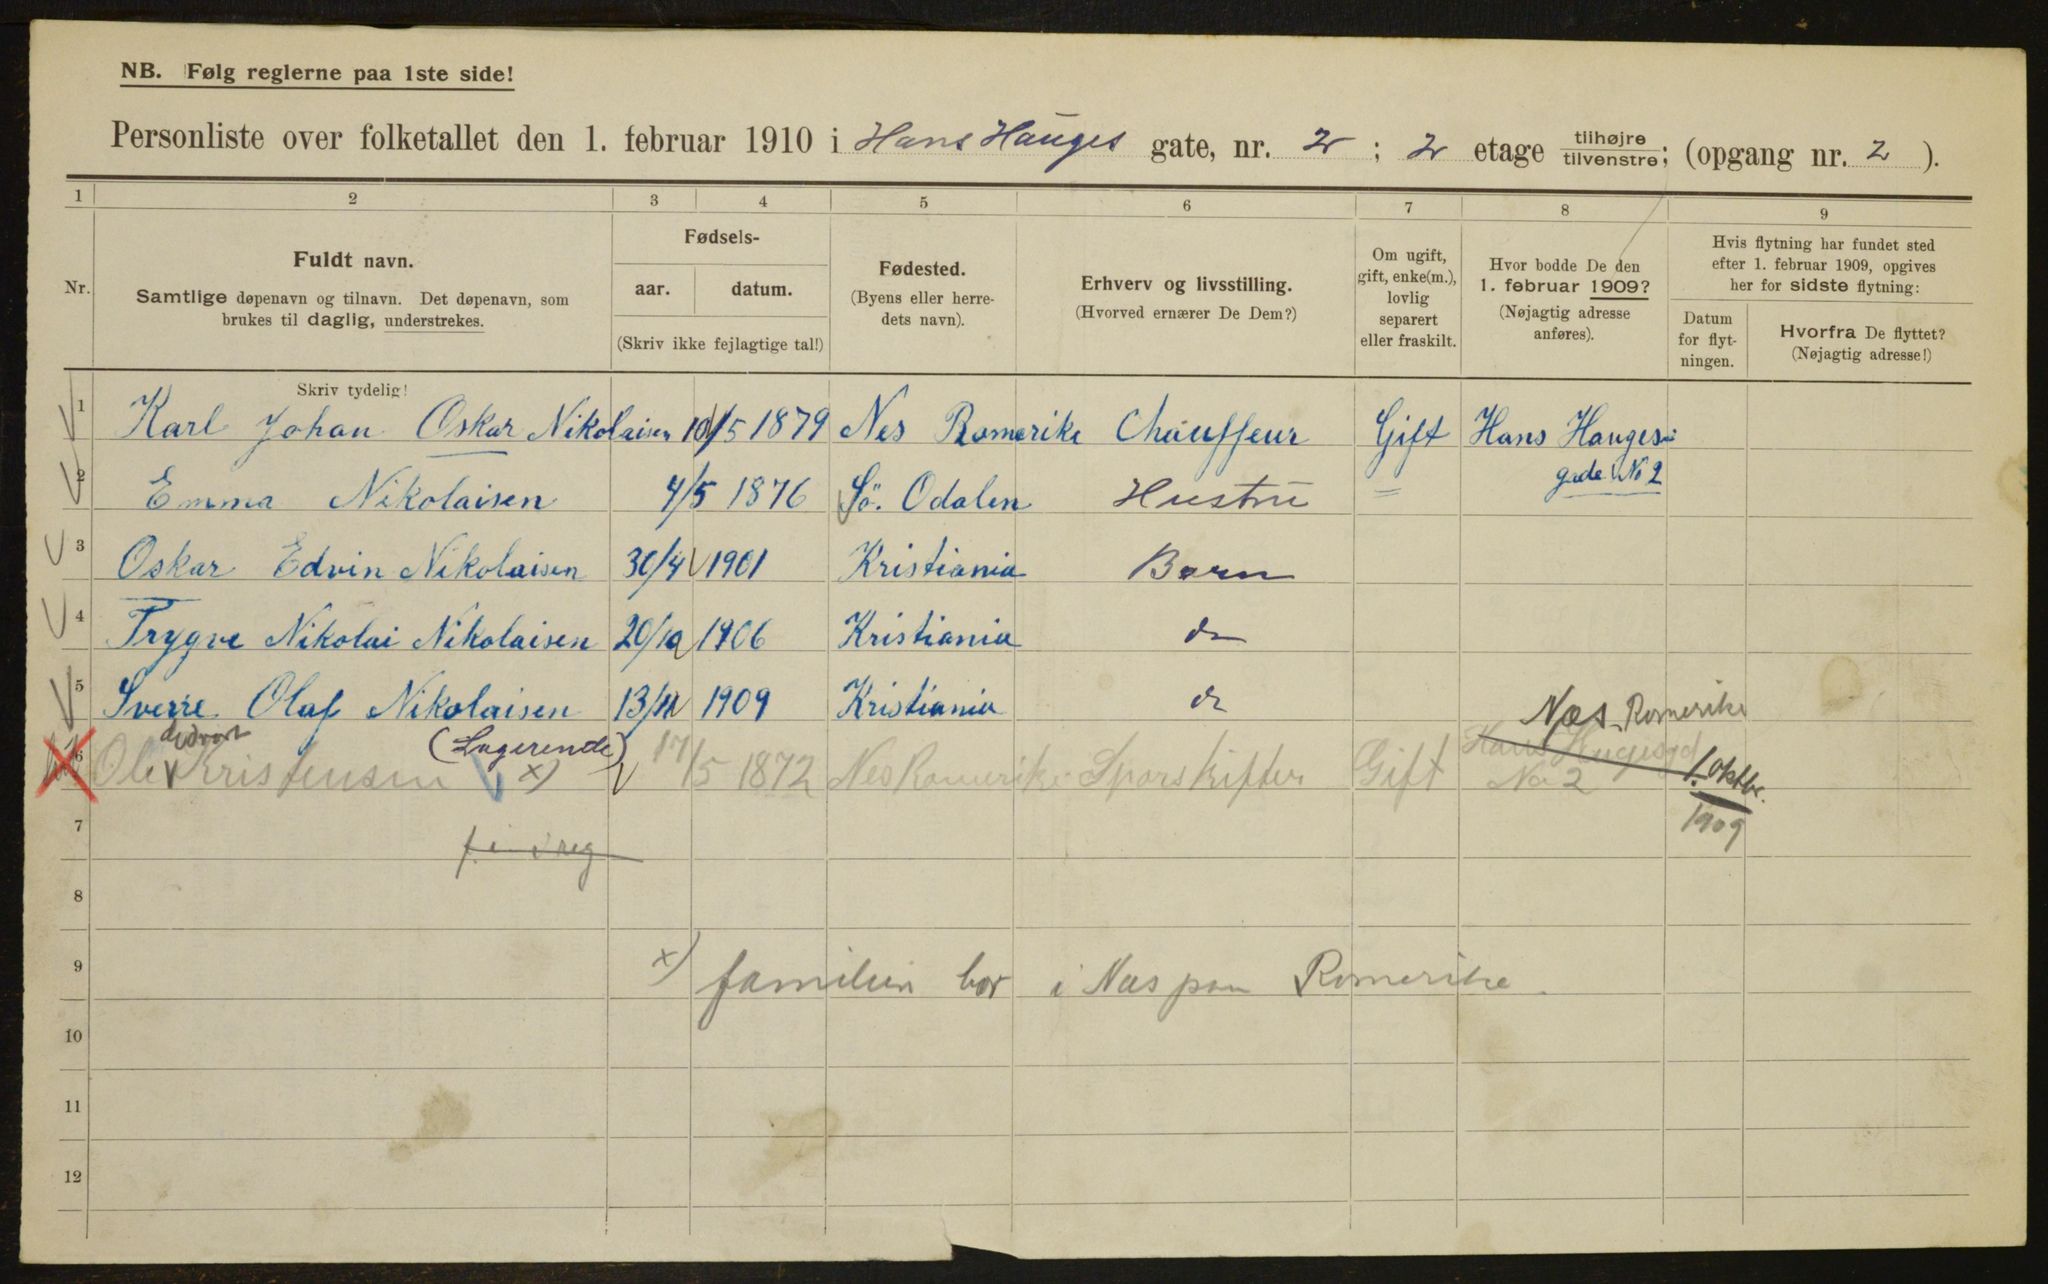 NB. Følg reglerne paa 1ste side!
Personliste over folketallet den 1. februar 1910 i Hans Hauges gate, nr. 2 ; 2 etage tilhøjre tilvenstre; (opgang nr. 2 ).
1 2 3 4 5 6 7 8 9
Nr.
Fuldt navn.
Samtlige døpenavn og tilnavn. Det døpenavn, som
brukes til daglig, understrekes.
Skriv tydelig!
Fødsels-
aar. datum.
(Skriv ikke fejlagtige tal!)
Fødested.
(Byens eller herre-
dets navn).
Erhverv og livsstilling.
(Hvorved ernærer De Dem?)
Om ugift,
gift, enke(m.),
lovlig
separert
eller fraskilt.
Hvor bodde De den
1. februar 1909?
(Nøjagtig adresse
anføres).
Hvis flytning har fundet sted
efter 1. februar 1909, opgives
her for sidste flytning:
Datum
for flyt-
ningen.
Hvorfra De flyttet?
(Nøjagtig adresse!)
1 Karl Johan Oskar Nikolaisen 10/5 1879 Nes Romerike Chauffeur Gift Hans Hauges-
gade No 2
2 Emma Nikolaisen 4/5 1876 Sö. Odalen Hustru =
3 Oskar Edvin Nikolaisen 30/4 1901 Kristiania Barn
4 Trygve Nikolai Nikolaisen 20/10 1906 Kristiania do
5 Sverre Olaf Nikolaisen 13/11 1909 Kristiania do
Næs Romerike
6 Ole Kristensen (Logerende) x) 17/5 1872 Nes Romerike Sporskifter Gift Hans Haugesgd
No 2
1. Oktbr.
1909
7
8
9 x) familien bor i Næs paa Romerike.
10
11
12